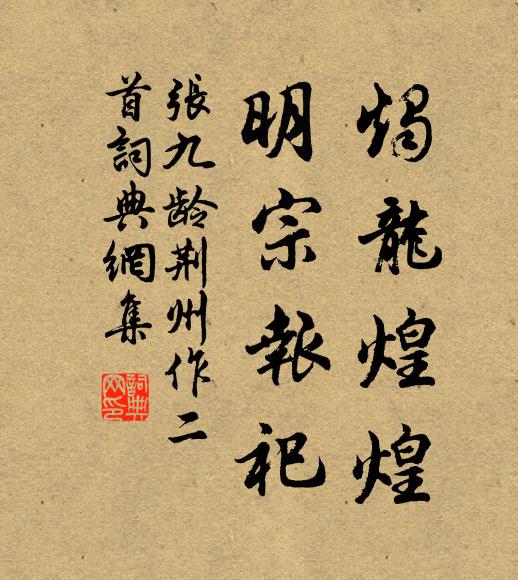 燭龍煌煌
明宗報祀
張九齡荆州作二
首詞典網集
詞典網印